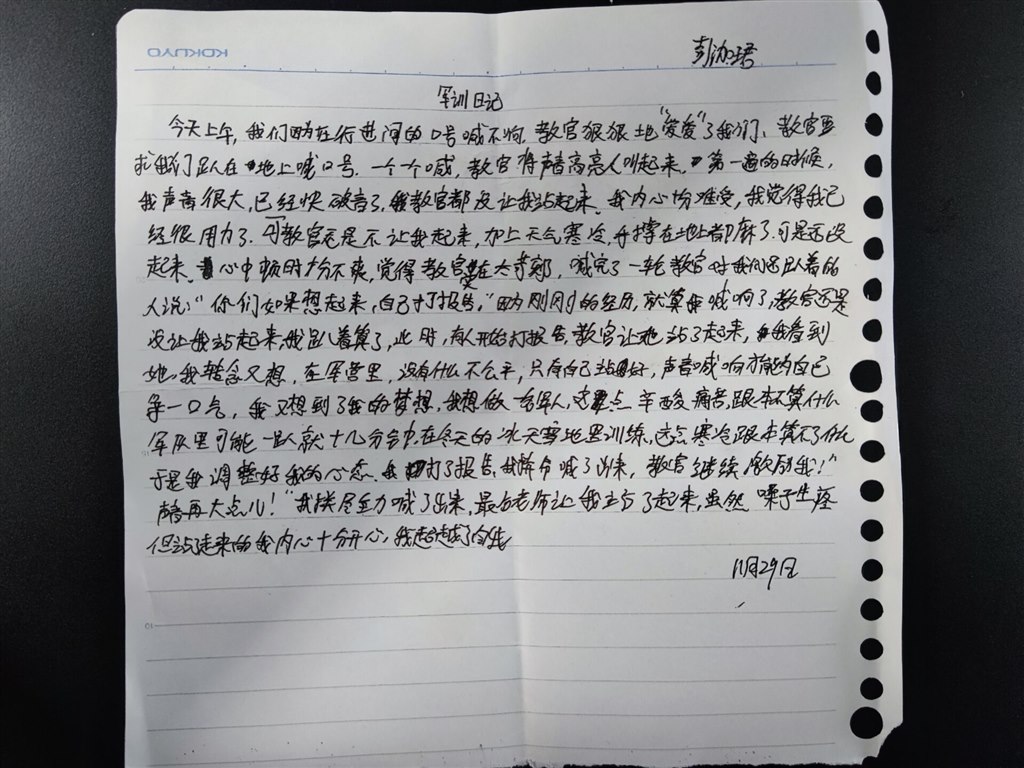 KOKUYO
彭
军训日记
今天上午,我们因为在行进间的口号喊不响,教官狠狠地"爱爱"了我们,教官要
求我们趴在地上喊口号,一个个喊,教官将声音高亮人叫起来,第一遍的时候,
我声音很大,已经快破音了,教官都没让我站起来,我内心十分难受,我觉得我已
经很用力了.可教官还是不让我起来,加上天气寒冷,手撑在地上都麻了.可是还没
起来.心中顿时十分不爽,觉得教官实在太苛刻,喊完了一轮教官对我们还趴着的
人说:"你们如果想起来,自己打报告,"因为刚刚的经历,就算我喊响了,教官还是
没让我站起来,我趴着算了,此时,有人开始打报告,教官让她站了起来,我看到
她,我转念又想,在军营里,没有什么不公平,只有自己站好,声音喊响才能为自己
争一口气,我又想到了我的梦想,我想做一名军人,这点辛酸痛苦,跟本不算什么
军队里可能一趴就十几分钟,在冬天的冰天雪地里训练,这点寒冷跟本算不了什么
于是我调整好我的心态,我打了报告,我拼命喊了出来,教官继续激励我!"
声音再大点儿!"我拼尽全力喊了出来,最后老师让我站了起来,虽然嗓子生疼
但站起来的我内心十分开心,我超越了自我
11月29日